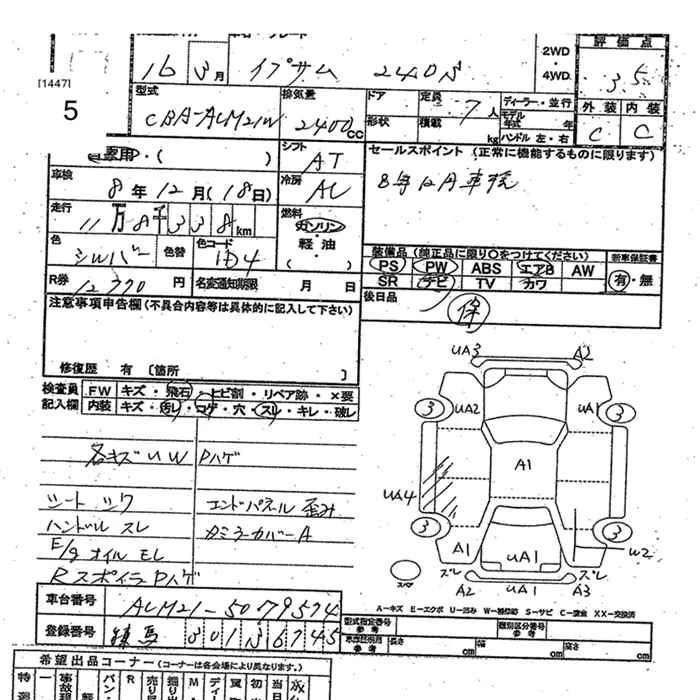 [1447]
5
16 3月 イプサム 240S
2WD・4WD
評価点
3.5
外装 内装
C C
型式 CBA-ACM21W
排気量 2400cc
ドア
形状
定員 7人
積載 kg
ディーラー・並行
モデル年式 年
ハンドル 左・右
家用・( )
シフト AT
セールスポイント (正常に機能するものに限ります)
8年12月車検
車検 8年12月(18日)
冷房 AC
走行 11万8千338km
燃料 ガソリン・軽油・( )
色 シルバー 色替 色コード 1D4
装備品(純正品に限り〇をつけてください)
新車保証書
PS PW ABS エアB AW
有・無
SR ナビ TV カワ
R券 12,770円 名変通知期限 月 日
後日品 保
注意事項申告欄(不具合内容等は具体的に記入して下さい)
修復歴 有 〔箇所 〕
検査員記入欄
FW キズ・飛石・ヒビ割・リペア跡・×要
内装 キズ・汚レ・コゲ・穴・スレ・キレ・破レ
各キズUW Pハゲ
シート シワ エンドパネル 歪み
ハンドル スレ タミラーカバーA
E/g オイル モレ
Rスポイラ Pハゲ
UA3 A2
3 UA2 UA1 3
A1
UA4
3 3
A1 UA1 W2
スペア
ズレ ズレ
A2 UA1 A3
A－キズ E－エクボ U－凹み W－補修跡 S－サビ C－腐食 XX－交換済
車台番号 ACM21-5079574
登録番号 練馬 301 3 6745
型式指定番号 参考
類別区分番号 参考
車両区分用 参考 長さ cm 幅 cm 高さ cm
希望出品コーナー(コーナーは各会場により異なります。)